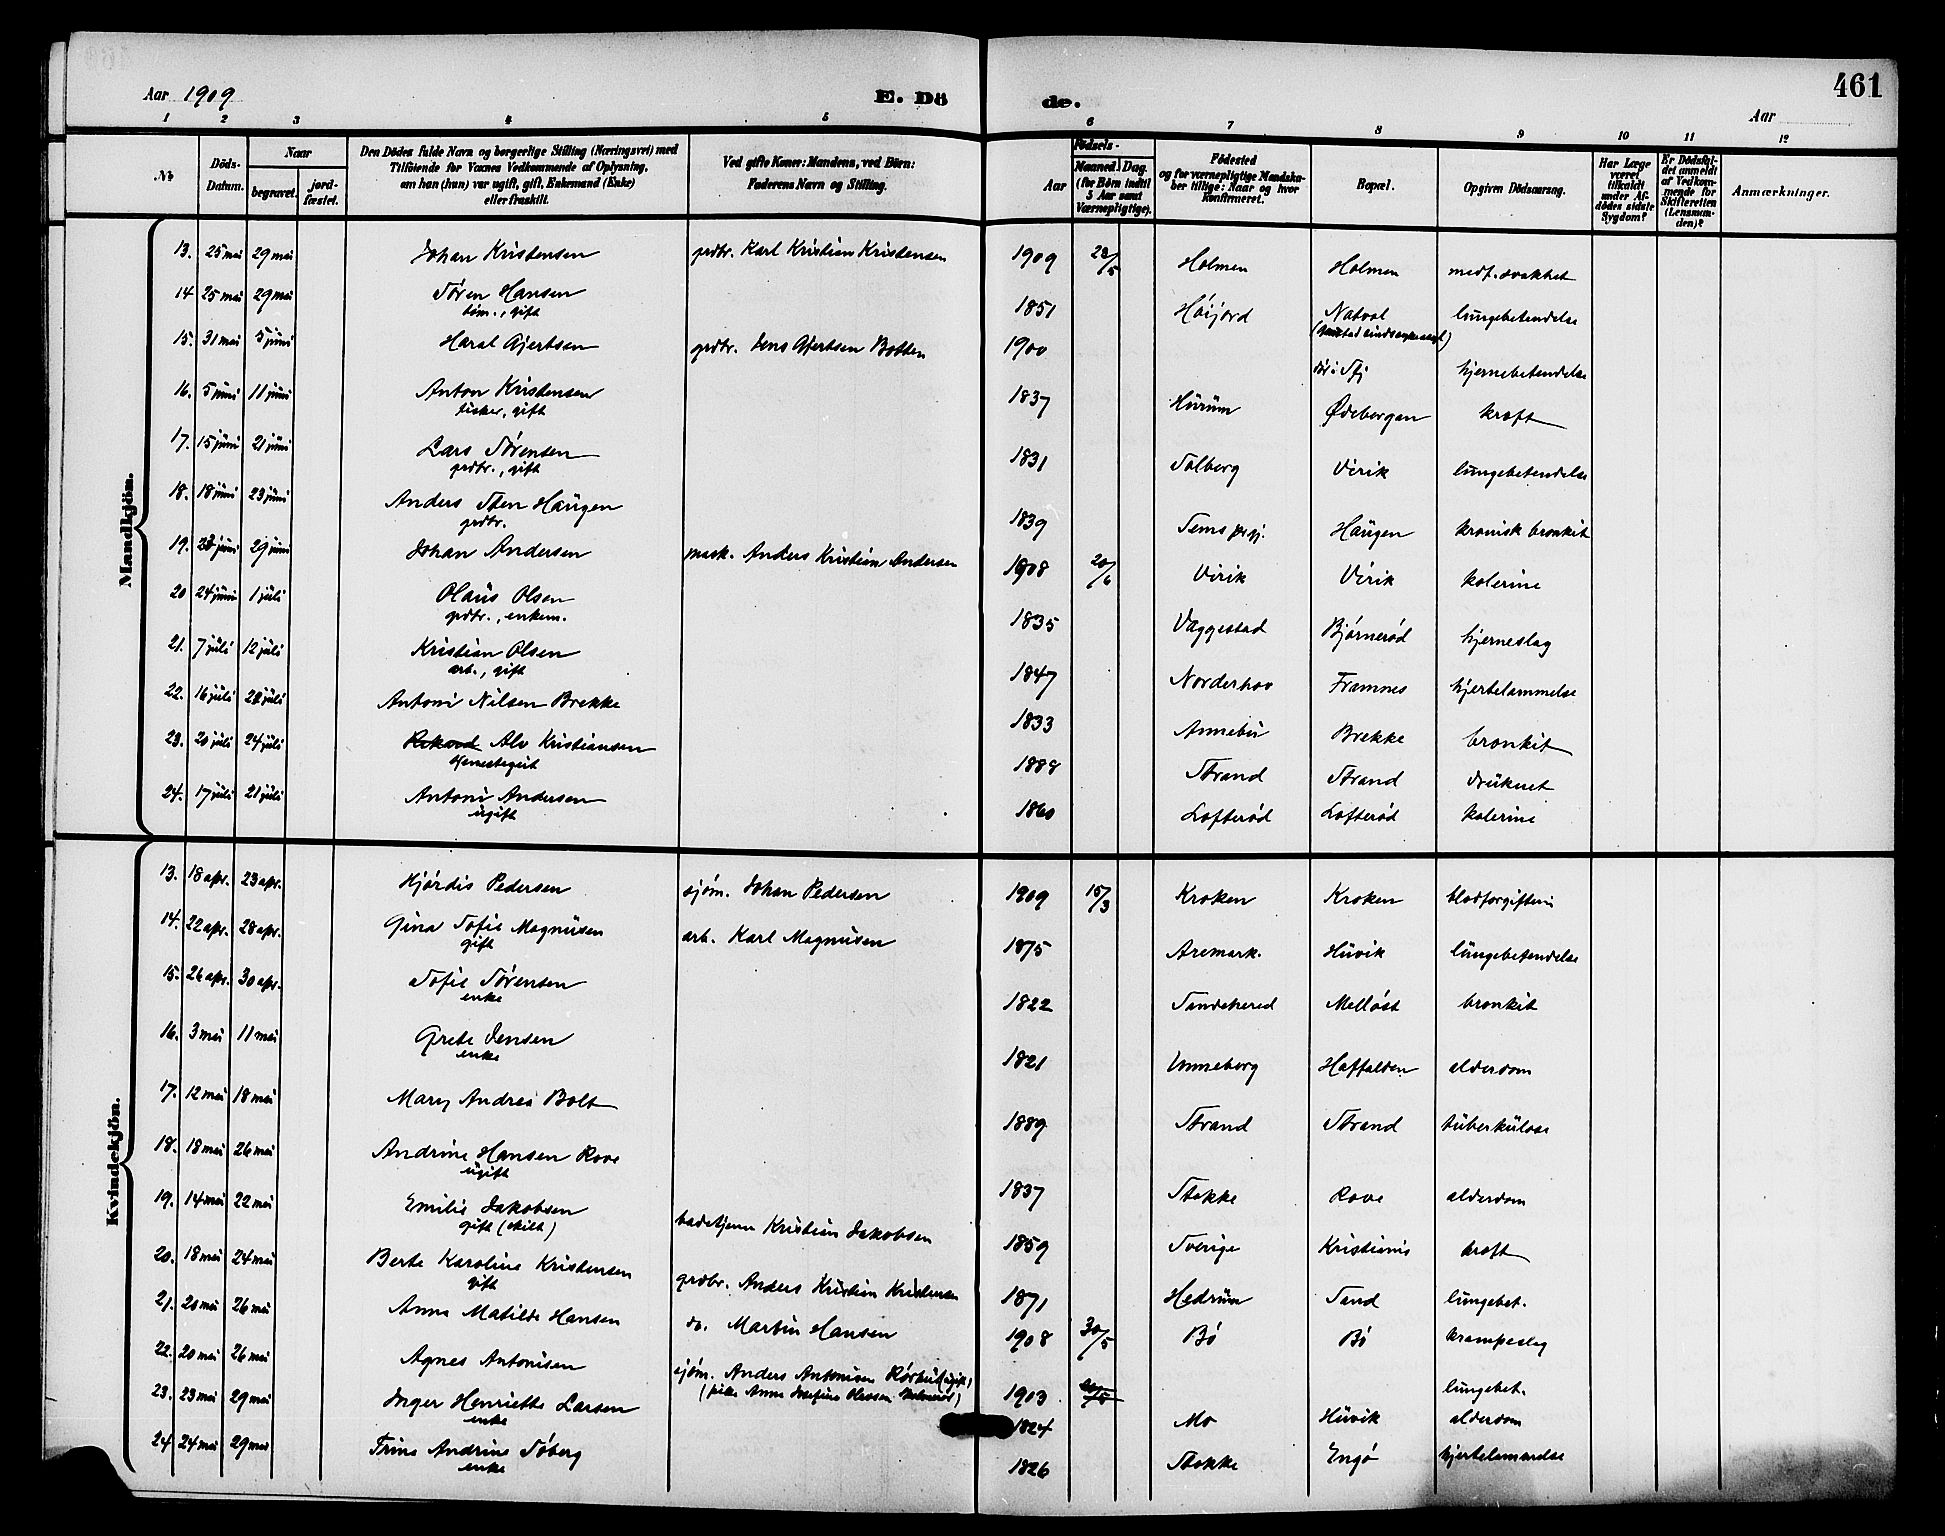 461
Aar 1909 E. Dö de. Aar
1 2 3 4 5 6 7 8 9 10 11 12
№ Döds-Datum. Naar begravet. jord-fæstet. Den Dödes fulde Navn og borgerlige Stilling (Næringsvei) med Tilföiende for Voxnes Vedkommende af Oplysning, om han (hun) var ugift, gift, Enkemand (Enke) eller fraskilt. Ved gifte Koner: Mandens, ved Börn: Faderens Navn og Stilling. Födsels- Aar Maaned. Dag. (for Börn indtil 5 Aar samt Værnepligtige). Födested og for værnepligtige Mandskaber tillige: Naar og hvor Konfirmeret. Bopæl. Opgiven Dödsaarsag. Har Læge været tilkaldt under Afdödes sidste Sygdom? Er Dödsfaldet anmeldt af Vedkommende for Skifteretten (Lensmanden)? Anmærkninger.
Mandkjön.
13. 25 mai 29 mai Johan Kristensen grdbr. Karl Kristian Kristensen 1909 22/5 Holmen Holmen medf. svakhet
14 25 mai 29 mai Søren Hansen 1851 Høijord Natvol lungebetendelse
tøm., gift
15. 31 mai 5 juni Haral Gjertsen grdbr. Jens Gjertsen Botten 1900 hjernebetendelse
16. 5 juni 11 juni Anton Kristensen 1837 Hurum Ødebergen kræft
fisker, gift
17. 15 juni 21 juni Lars Sørensen 1831 Solberg Virik lungebetendelse
grdbr., gift
18. 18 juni 23 juni Anders Sten Haugen 1839 Sems prgj. Haugen kronisk bronkit
grdbr.
19. 23 juni 29 juni Johan Andersen mask. Anders Kristian Andersen 1908 20/6 Virik Virik kolerine
20 24 juni 1 juli Olaus Olsen 1835 Vaggestad Bjørnerød hjerneslag
grdbr., enkem.
21. 7 juli 12 juli Kristian Olsen 1847 Norderhov Framnes hjertelammelse
arb., gift
22. 16 juli 22 juli Antoni Nilsen Brekke 1833 Annebu Brekke bronkit
23. 20 juli 24 juli Rikard Alv Kristiansen 1888 Strand Strand druknet
tjenestegut
24. 17 juli 21 juli Antoni Andersen 1860 Lofterød Lofterød kolerine
ugift
Kvindekjön.
13. 18 apr. 23 apr. Hjørdis Pedersen sjøm. Johan Pedersen 1909 15/3 Kroken Kroken blodforgiftnin
14. 22 apr. 28 apr. Gina Sofie Magnusen arb. Karl Magnusen 1875 Aremark. Huvik lungebetendelse
gift
15. 26 apr. 30 apr. Sofie Sørensen 1822 Sandeherred Melløst bronkit
enke
16. 3 mai 11 mai Grete Jensen 1821 Unneberg Haffalden alderdom
enke
17. 12 mai 18 mai Mary Andrea Bolt 1889 Strand Strand tuberkulose
18. 18 mai 26 mai Andrine Hansen Rove 1837 Stokke Rove alderdom
ugift
19. 14 mai 22 mai Emilie Jakobsen badetjener Kristian Jakobsen 1859 Sverige Kristiania kræft
gift (skilt)
20. 18 mai 24 mai Berte Karoline Kristensen grdbr. Anders Kristian Kristensen 1871 Hedrum Sand lungebet.
gift
21. 20 mai 26 mai Anna Matilde Hansen do. Martin Hansen 1908 30/5 Bø Bø krampeslag
22. 20 mai 26 mai Agnes Antonisen sjøm. Anders Antonisen 1903 lungebet.
(pike Anna Josefine
23. 23 mai 29 mai Inger Henriette Larsen 1824 Mo Huvik alderdom
enke
24 24 mai 29 mai Trine Andrine Søberg 1826 Stokke Engø hjertelammelse
enke